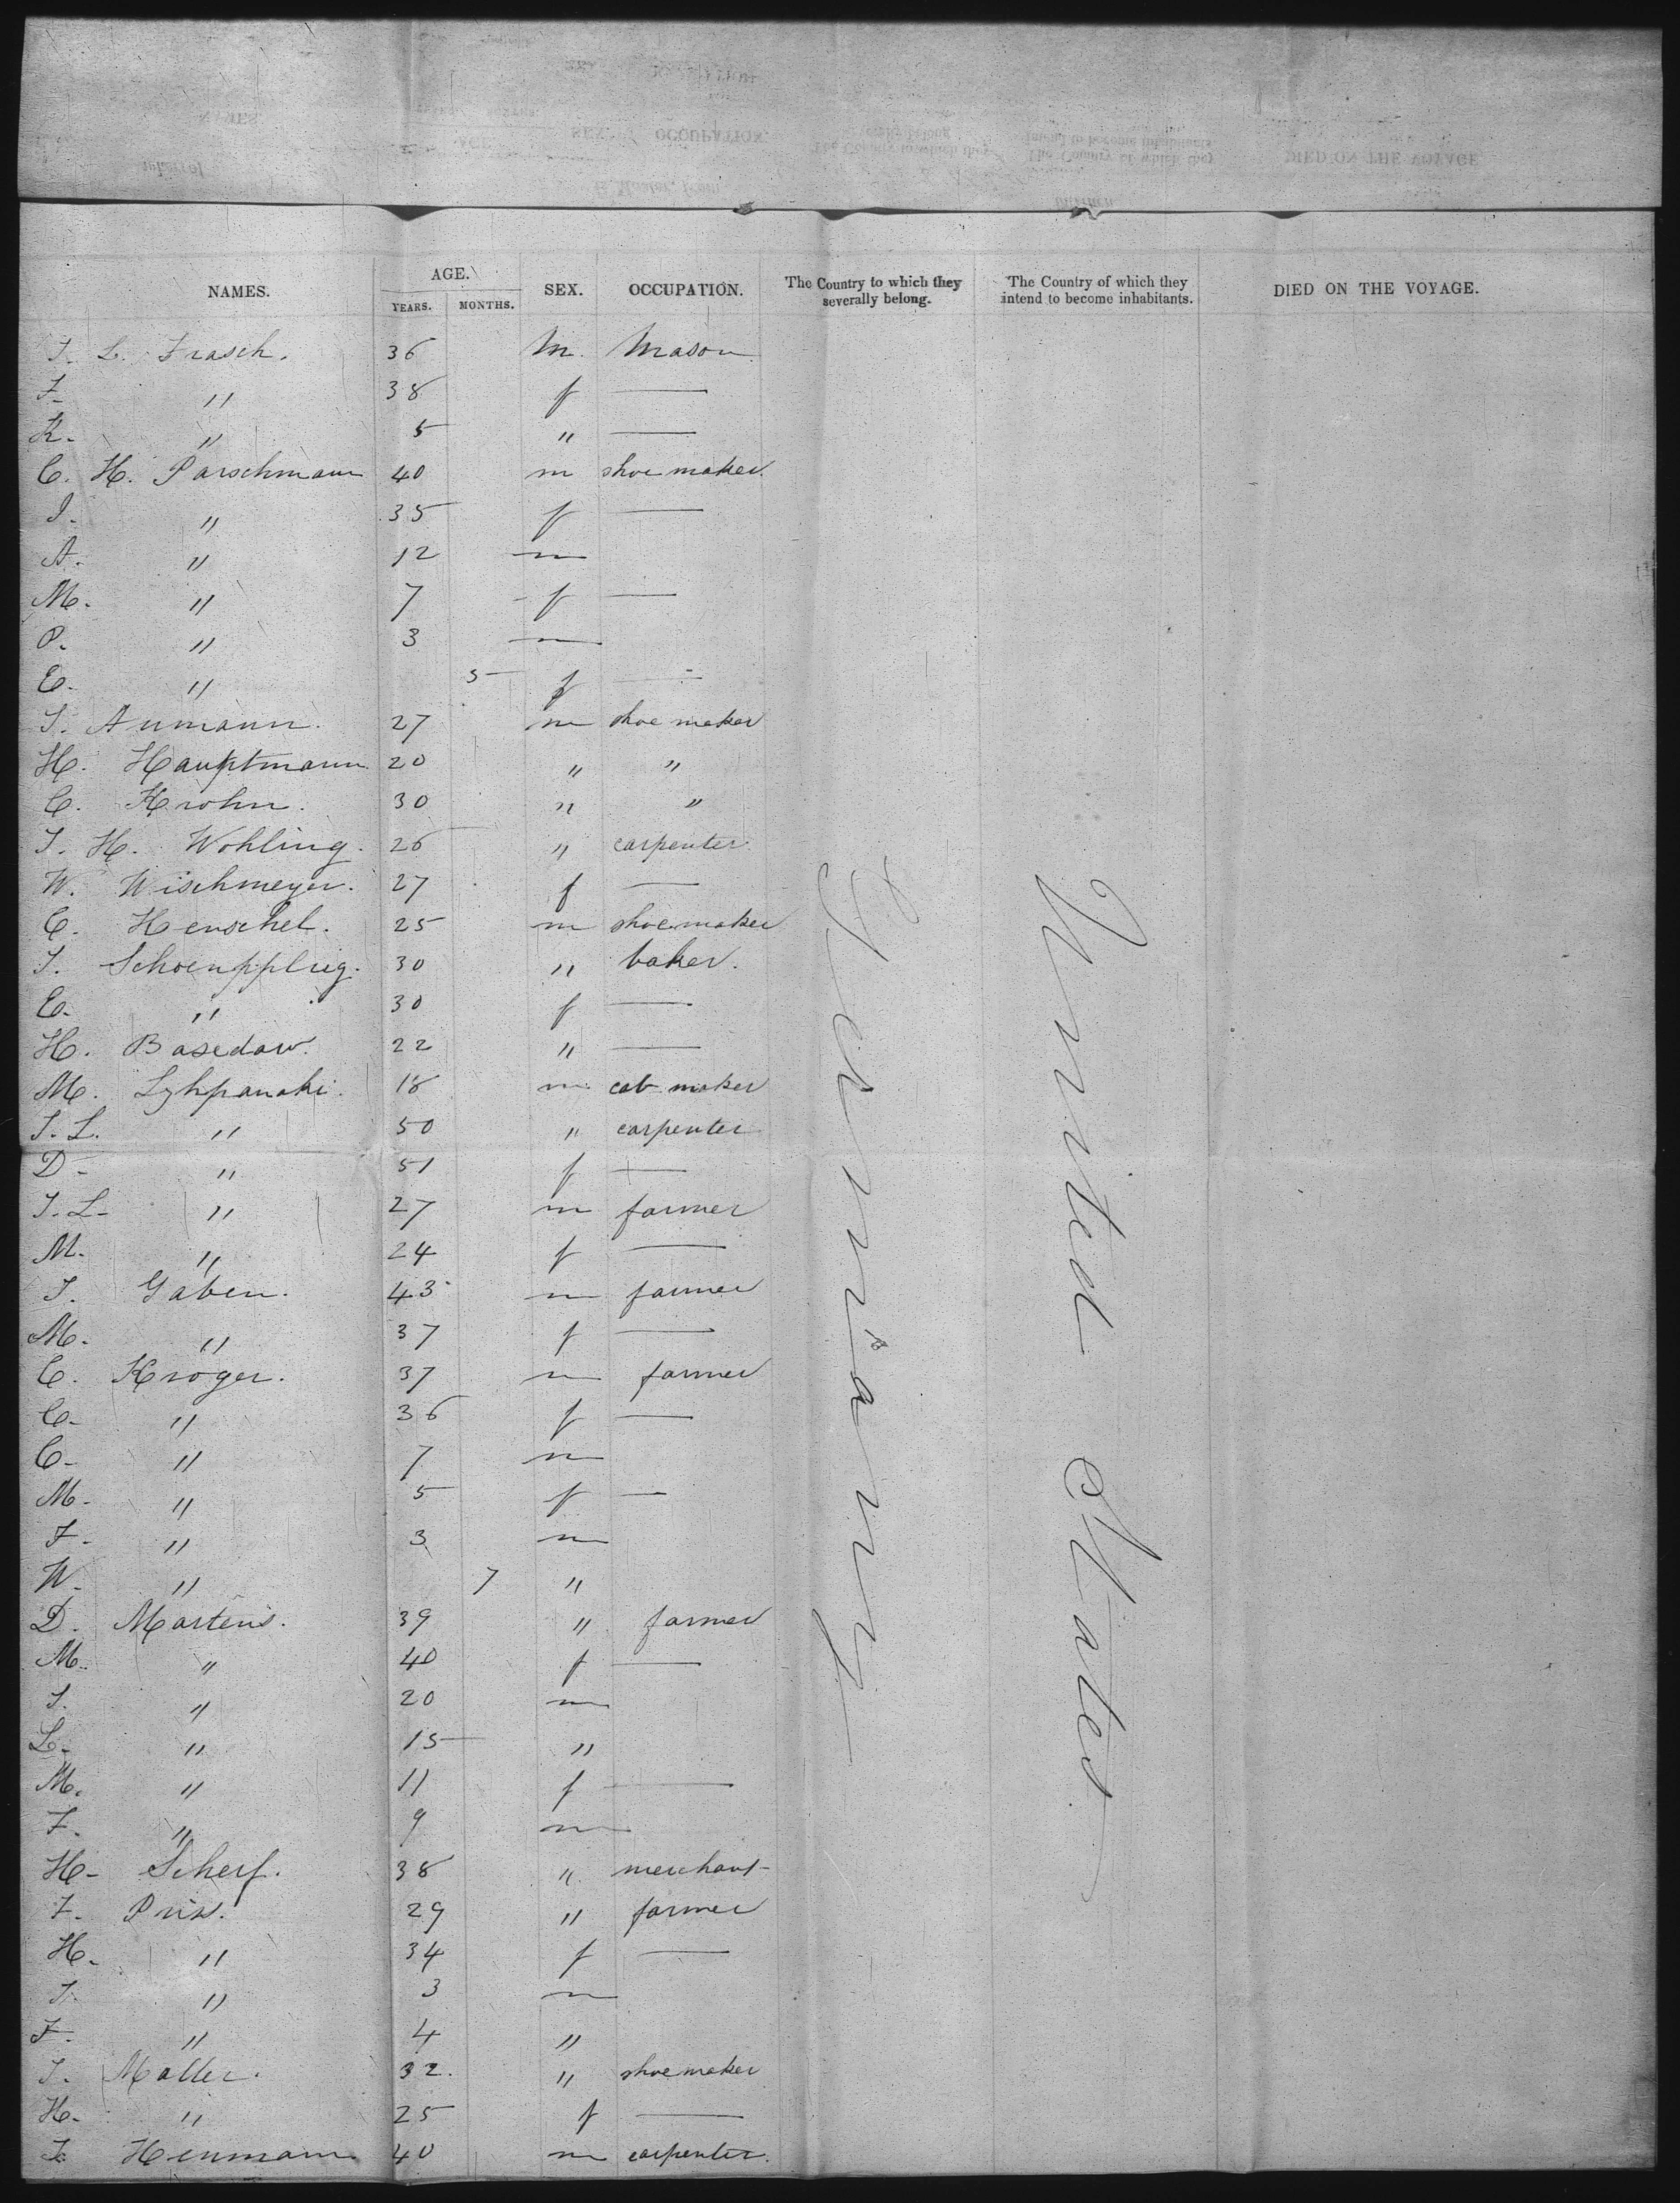 NAMES. AGE. SEX. OCCUPATION. The Country to which they severally belong. The Country of which they intend to become inhabitants. DIED ON THE VOYAGE.
YEARS. MONTHS.
J. L. Frasch. 36 M. Mason
F. " 38 f —
K. " 5 " —
C. H. Parschmann 40 m shoemaker.
J. " 35 f —
A. " 12 m
M. " 7 f —
P. " 3 m
E. " 5 f —
J. Aumann. 27 m shoemaker
H. Hauptmann 20 " "
C. Krohn. 30 " "
J. H. Wohling. 26 " carpenter
W. Wischmeyer. 27 f —
C. Henschel. 25 m shoemaker
J. Schoenpplug. 30 " baker.
E. " 30 f —
H. Basedaw. 22 " —
M. Lyhpanaki. 18 m cab maker
J. L. " 50 " carpenter
D. " 51 f —
J. L. " 27 m farmer
M. " 24 f —
J. Gaben. 43 m farmer
M. " 37 f —
C. Kroger. 37 m farmer
C. " 36 f —
C. " 7 m
M. " 5 f —
F. " 3 m
W. " 7 "
D. Martens. 39 " farmer
M. " 40 f —
J. " 20 m
L. " 15 "
M. " 11 f —
F. " 9 m
H. Scherf. 38 " merchant
F. Pris. 29 " farmer
H. " 34 f —
J. " 3 m
F. " 4 "
J. Moller. 32. " shoemaker
H. " 25 f —
Henmann 40 m carpenter.
Germany
United States